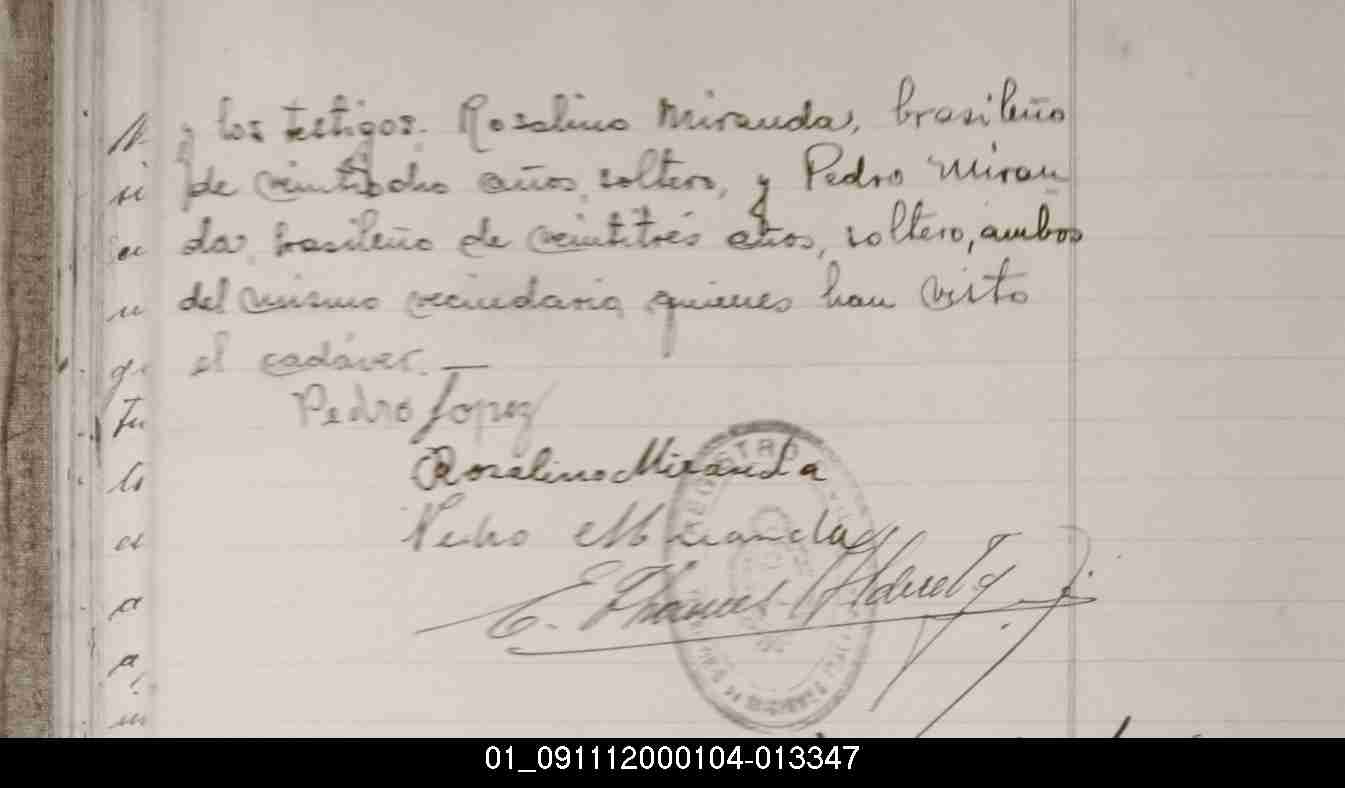 y los testigos. Rosalino Miranda, brasileño
de veintiocho años, soltero, y Pedro Miran
da, brasileño de veintitrés años, soltero, ambos
del mismo vecindario, quienes han visto
el cadáver.—
Pedro Lopez
Rosalino Miranda
Pedro Miranda
E.
REGISTRO
01_091112000104-013347